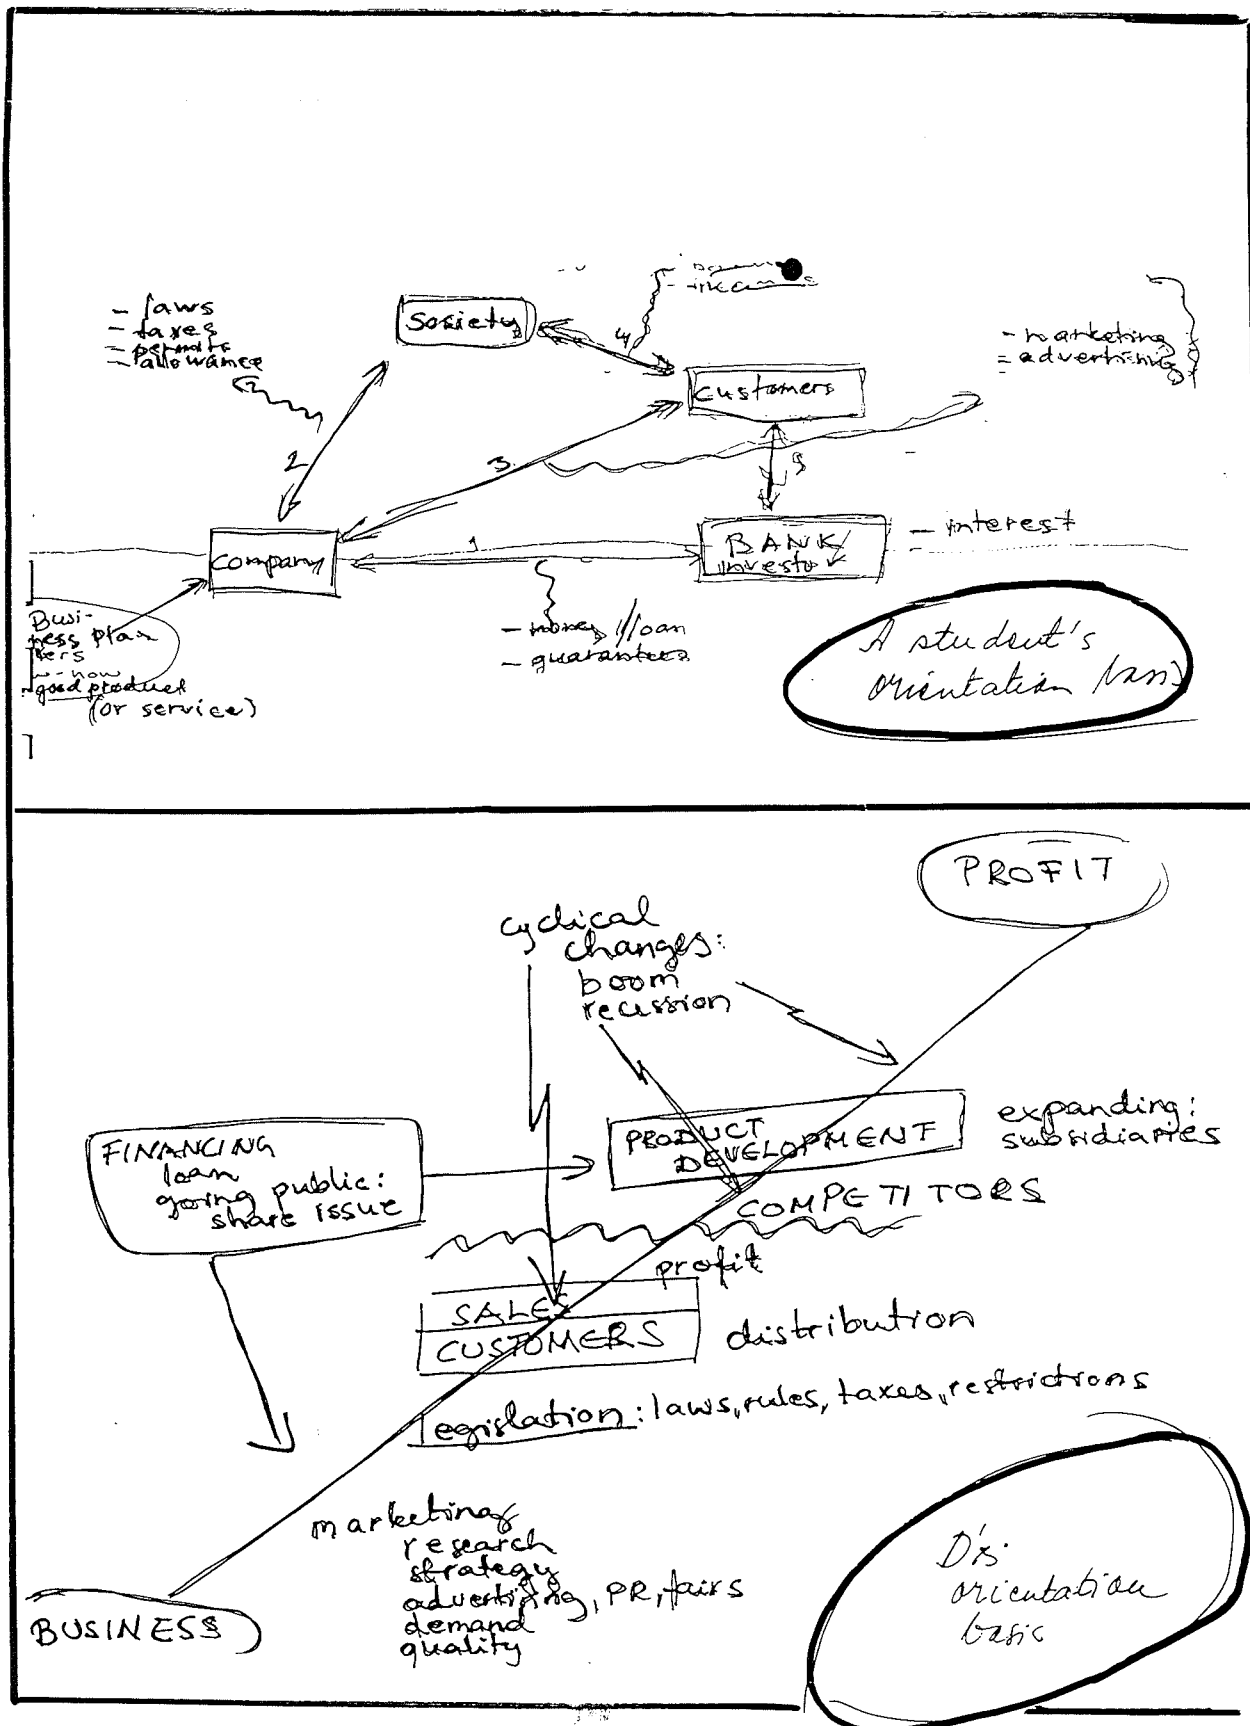 - laws
- taxes
- permits
- allowance
Sosiety
4
customers
- marketing
= advertising
2
3.
5
company
1
BANK/
investor
- interest
Busi-
ness plan
- money/loan
- guarantees
now
good product
(or service)
A student's
orientation basis
PROFIT
cyclical
changes:
boom
recession
FINANCING
loan
going public:
share issue
PRODUCT
DEVELOPMENT
expanding:
subsidiaries
COMPETITORS
profit
SALES
CUSTOMERS
distribution
legislation: laws, rules, taxes, restrictions
marketing
research
strategy
advertising, PR, fairs
demand
quality
BUSINESS
D's
orientation
basis